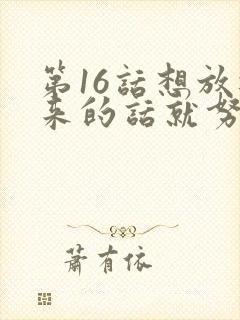 第16話想放
来的話就努
蕭有依